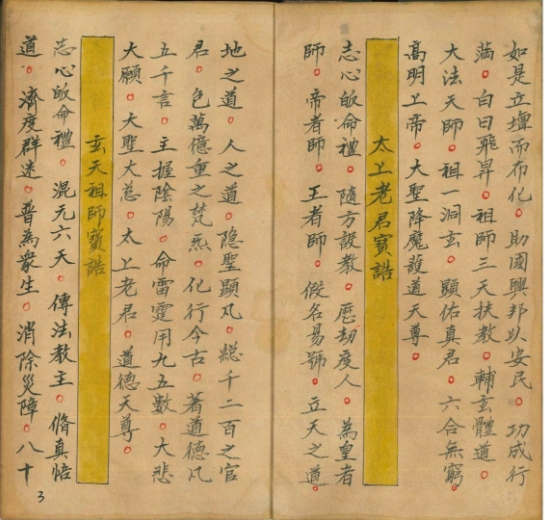 如是立壇而布化。助國興邦以安民。功成行
滿。白日飛昇。祖師三天扶教。輔玄體道。
大法天師。祖一洞玄。顕佑真君。六合無窮
髙明上帝。大聖降魔護道天尊。
太上老君寳誥
志心皈命禮。隨方設教。歴劫度人。為皇者
師。帝者師。王者師。假名易號。立天之道。
地之道。人之道。隐聖顕凡。総千二百之官
君。包萬億重之梵炁。化行今古。著道德凡
五千言。主握陰陽。命雷霆用九五數。大悲
大願。大聖大慈。太上老君。道德天尊。
玄天祖師寳誥
志心皈命禮。混元六天。傳法教主。脩真悟
道。濟度群迷。普為衆生。消除災障。八十
3